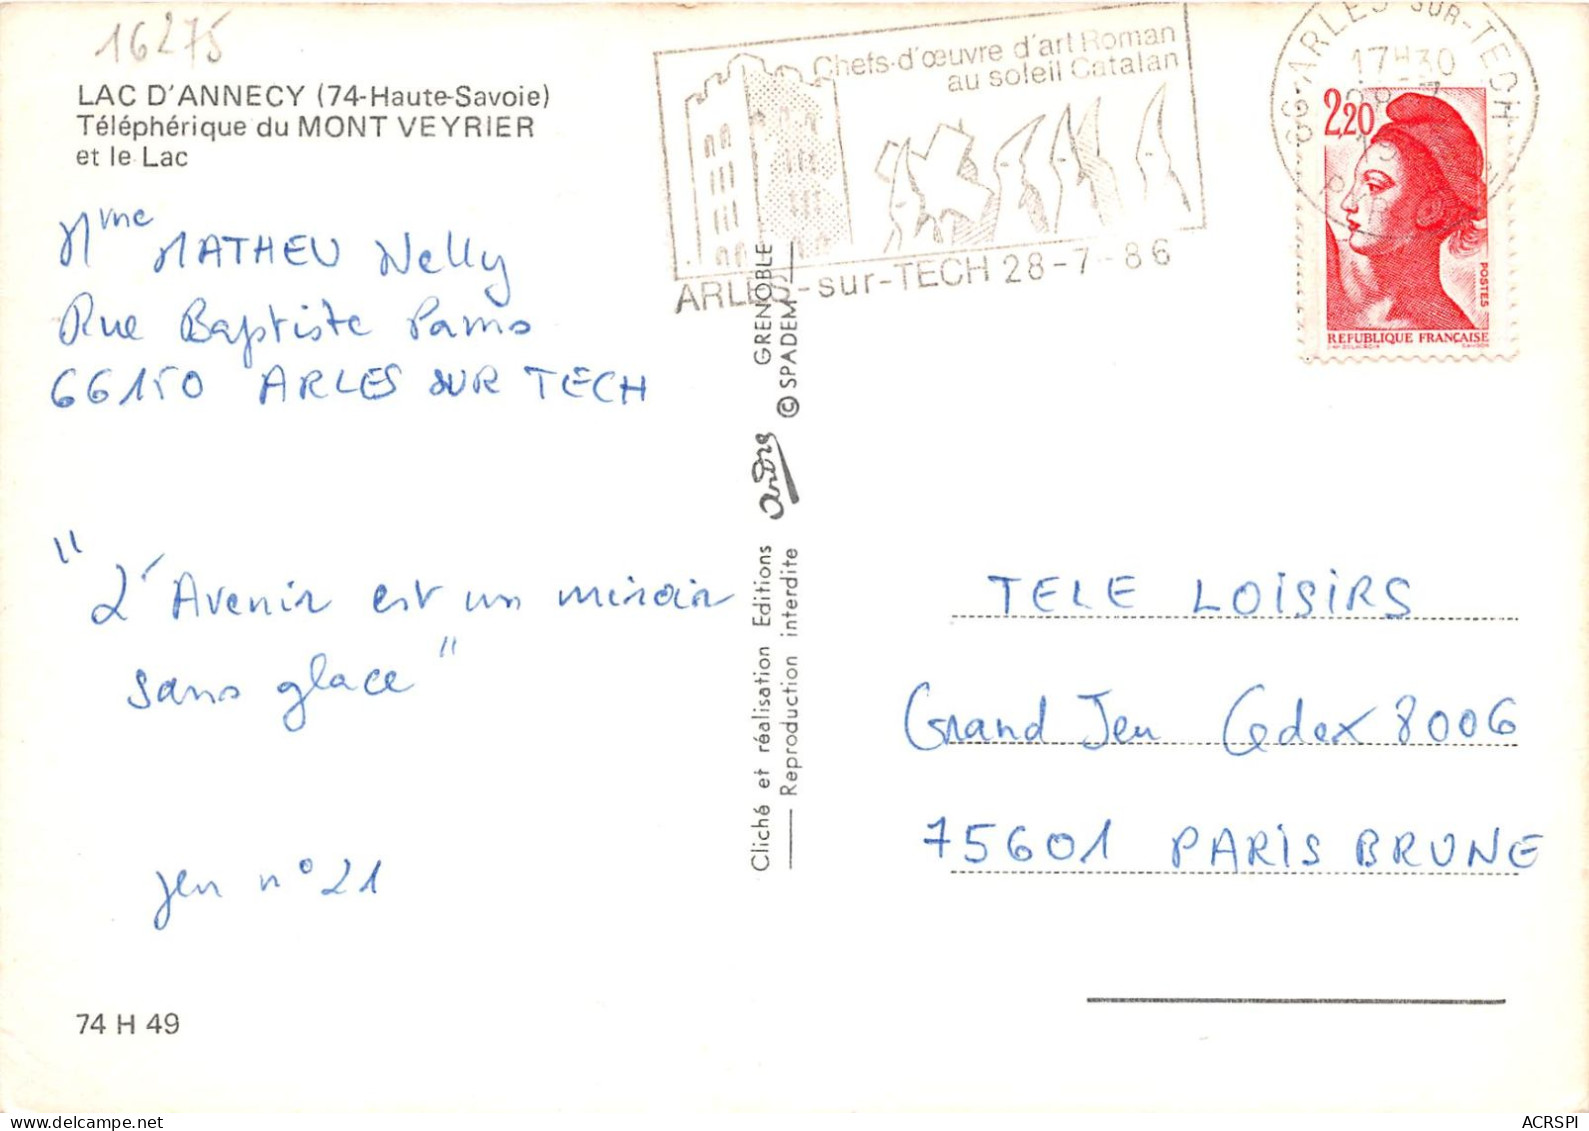 16275
LAC D'ANNECY (74-Haute-Savoie)
Téléphérique du MONT VEYRIER
et le Lac
Mme MATHEU Nelly
Rue Baptiste Pams
66150 ARLES SUR TECH
"L'Avenir est un miroir
sans glace"
jeu n° 21
74 H 49
Cliché et réalisation Editions André GRENOBLE
Reproduction interdite © SPADEM
Chefs-d'œuvre d'art Roman
au soleil Catalan
ARLES-sur-TECH 28-7-86
66 ARLES SUR-TECH
17H30
28-7
2,20
POSTES
REPUBLIQUE FRANÇAISE
TELE LOISIRS
Grand Jeu Cedex 8006
75601 PARIS BRUNE
ACRSPI